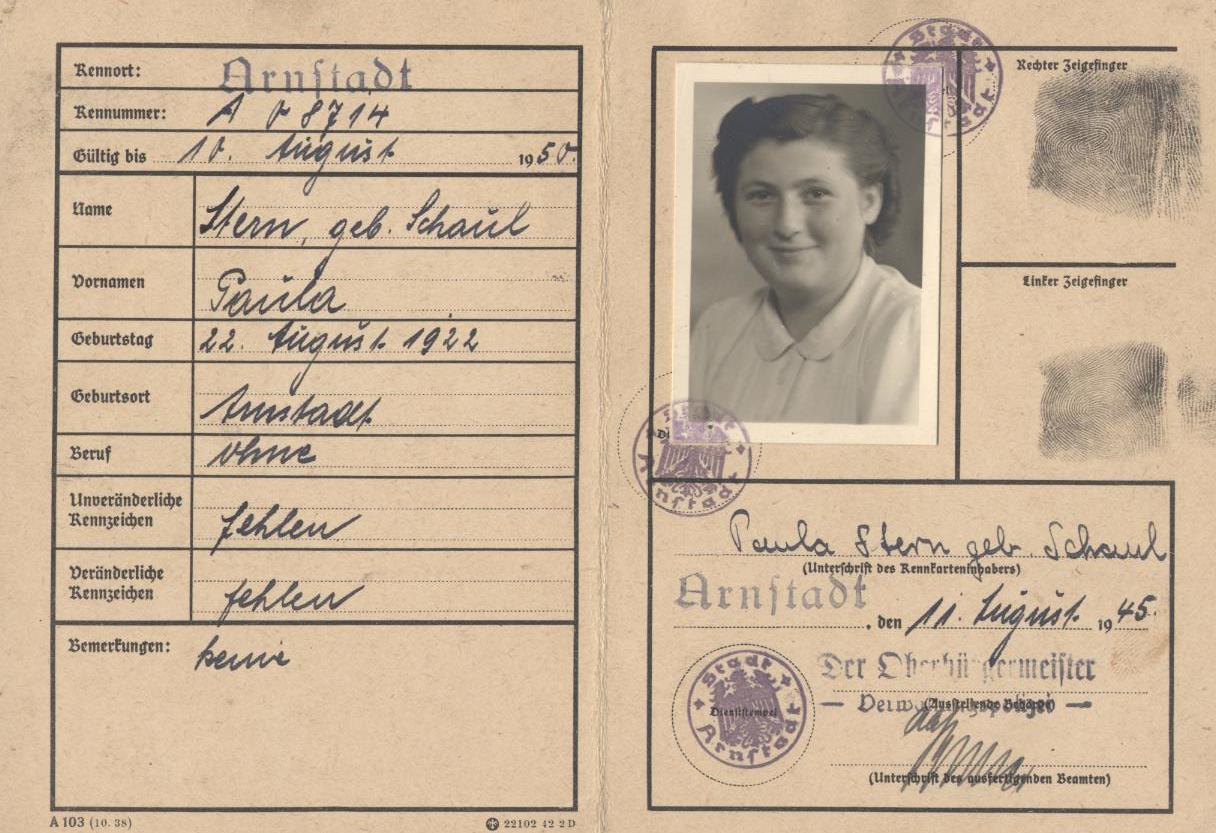 Kennort: Arnstadt
Kennummer: A 08714
Gültig bis 10. August 1950.
Name Stern, geb. Schaul
Vornamen Paula
Geburtstag 22. August 1922
Geburtsort Arnstadt
Beruf ohne
Unveränderliche
Kennzeichen fehlen
Veränderliche
Kennzeichen fehlen
Bemerkungen: keine
A 103 (10. 38)
22102 42 2 D
Stadt
Arnstadt
Rechter Zeigefinger
Linker Zeigefinger
Stadt
Arnstadt
Paula Stern geb. Schaul
(Unterschrift des Kennkarteninhabers)
Arnstadt, den 11. August 1945.
Der Oberbürgermeister
(Ausstellende Behörde)
Stadt
Dienststempel
Arnstadt
(Unterschrift des ausfertigenden Beamten)